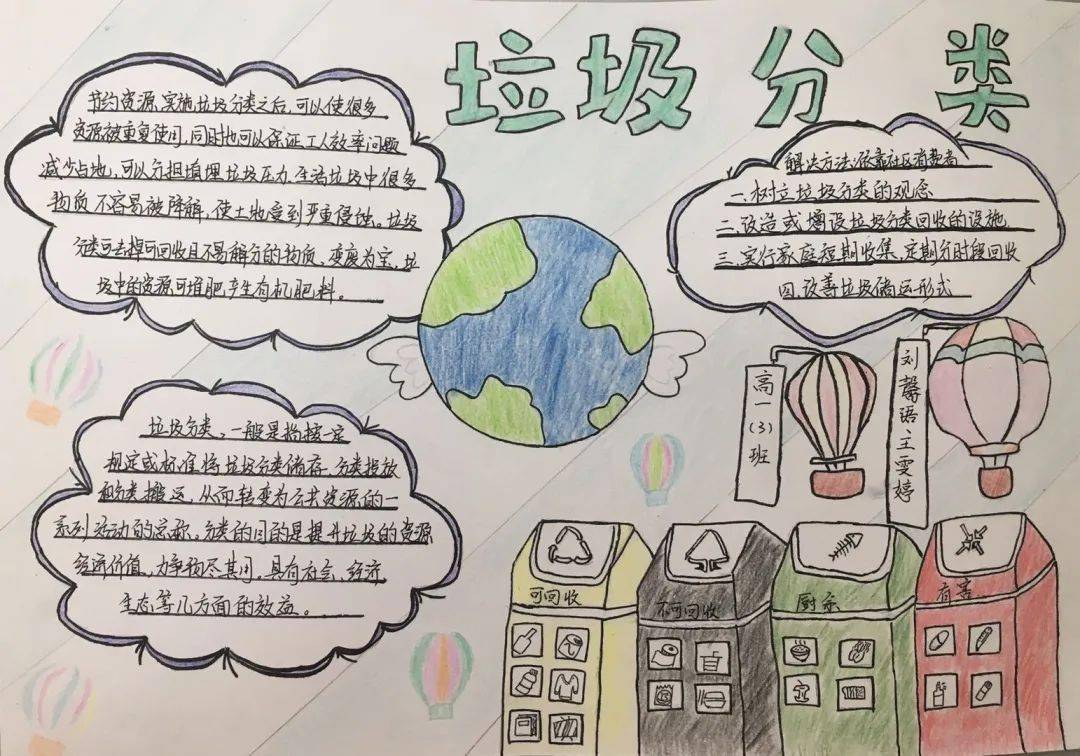 垃圾分类
节约资源,实施垃圾分类之后,可以使很多
资源被重复使用,同时也可以保证工人效率问题
减少占地,可以分担填埋垃圾压力,生活垃圾中很多
物质不容易被降解,使土地受到严重侵蚀。垃圾
分类可去掉可回收且不易解分的物质,变废为宝,垃
圾中的资源可堆肥,产生有机肥料。
解决方法:依靠社区消费者
一.树立垃圾分类的观念
二.改造或增设垃圾分类回收的设施
三.实行家庭短期收集,定期分时段回收
四.改善垃圾储运形式
垃圾分类,一般是指按一定
规定或标准将垃圾分类储存、分类投放
和分类搬运,从而转变为公共资源的一
系列活动的总称。分类的目的是提升垃圾的资源
经济价值,力争物尽其用,具有社会、经济
生态等几方面的效益。
高一(3)班
刘馨语王雯婷
可回收
不可回收
厨余
有害